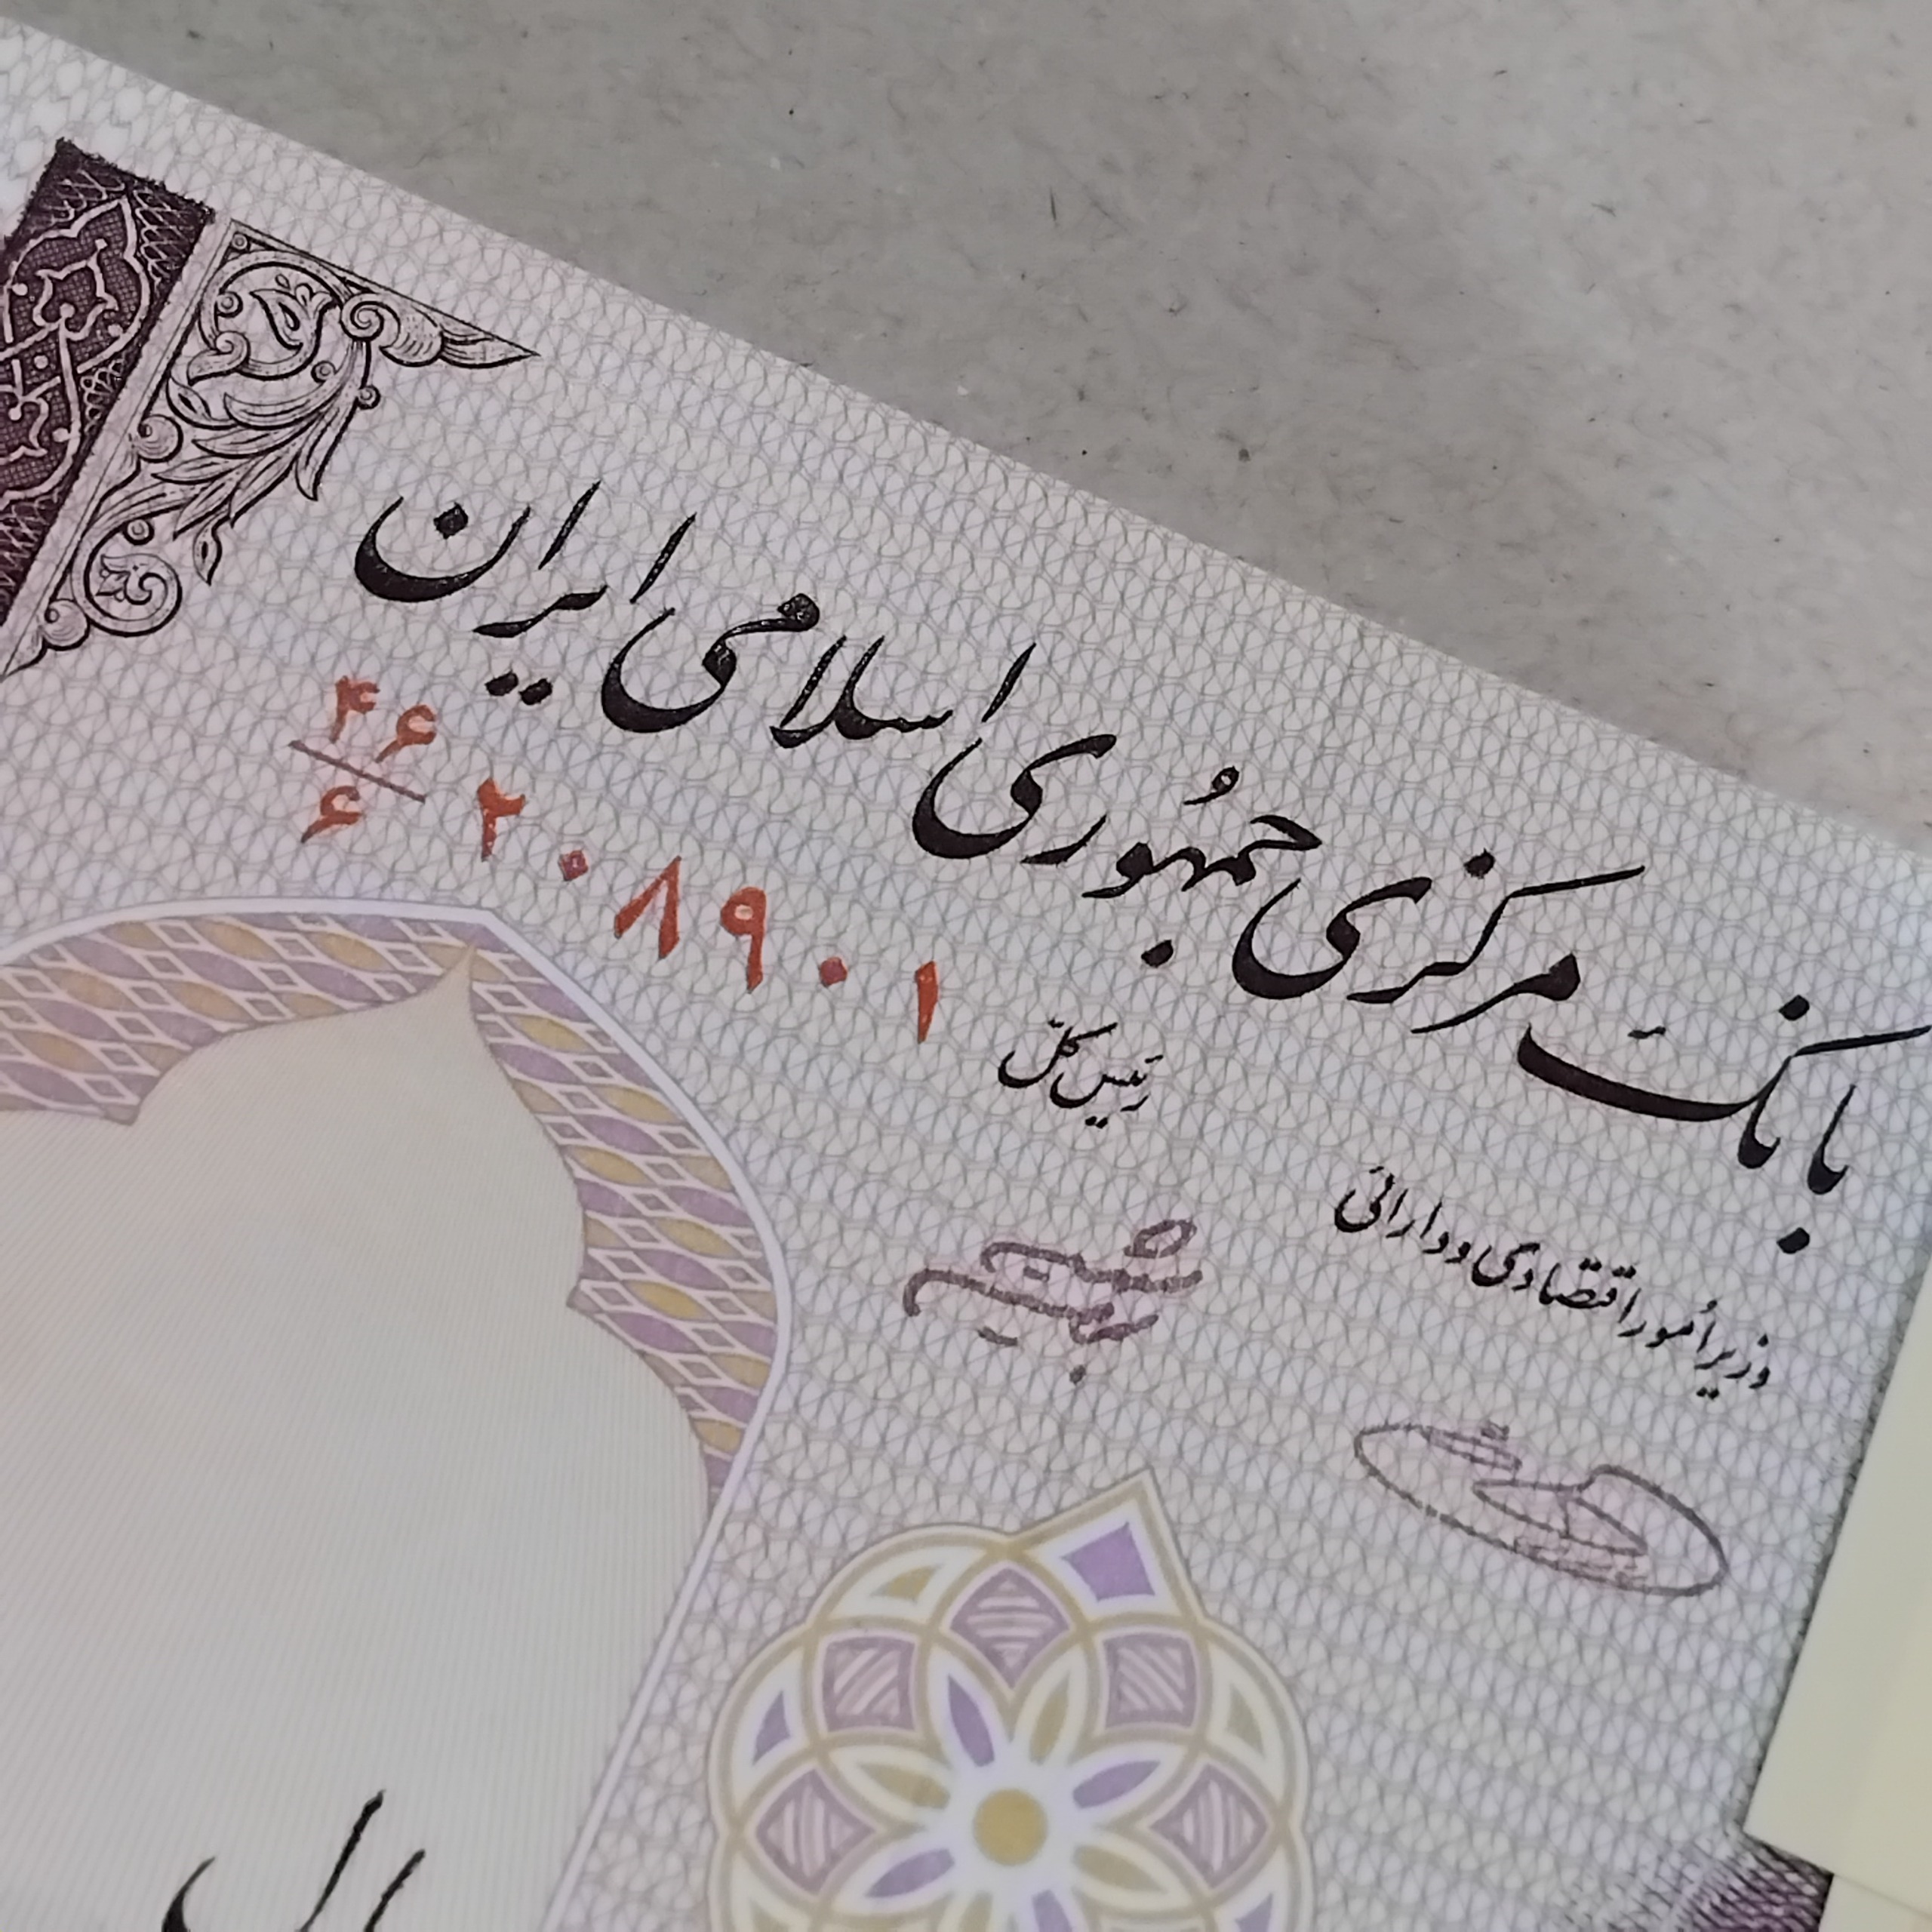 بانک مرکزی جمهوری اسلامی ایران
۴۶/۶ ۲۰۸۹۰۱
رئیس کل
وزیر امور اقتصادی و دارائی